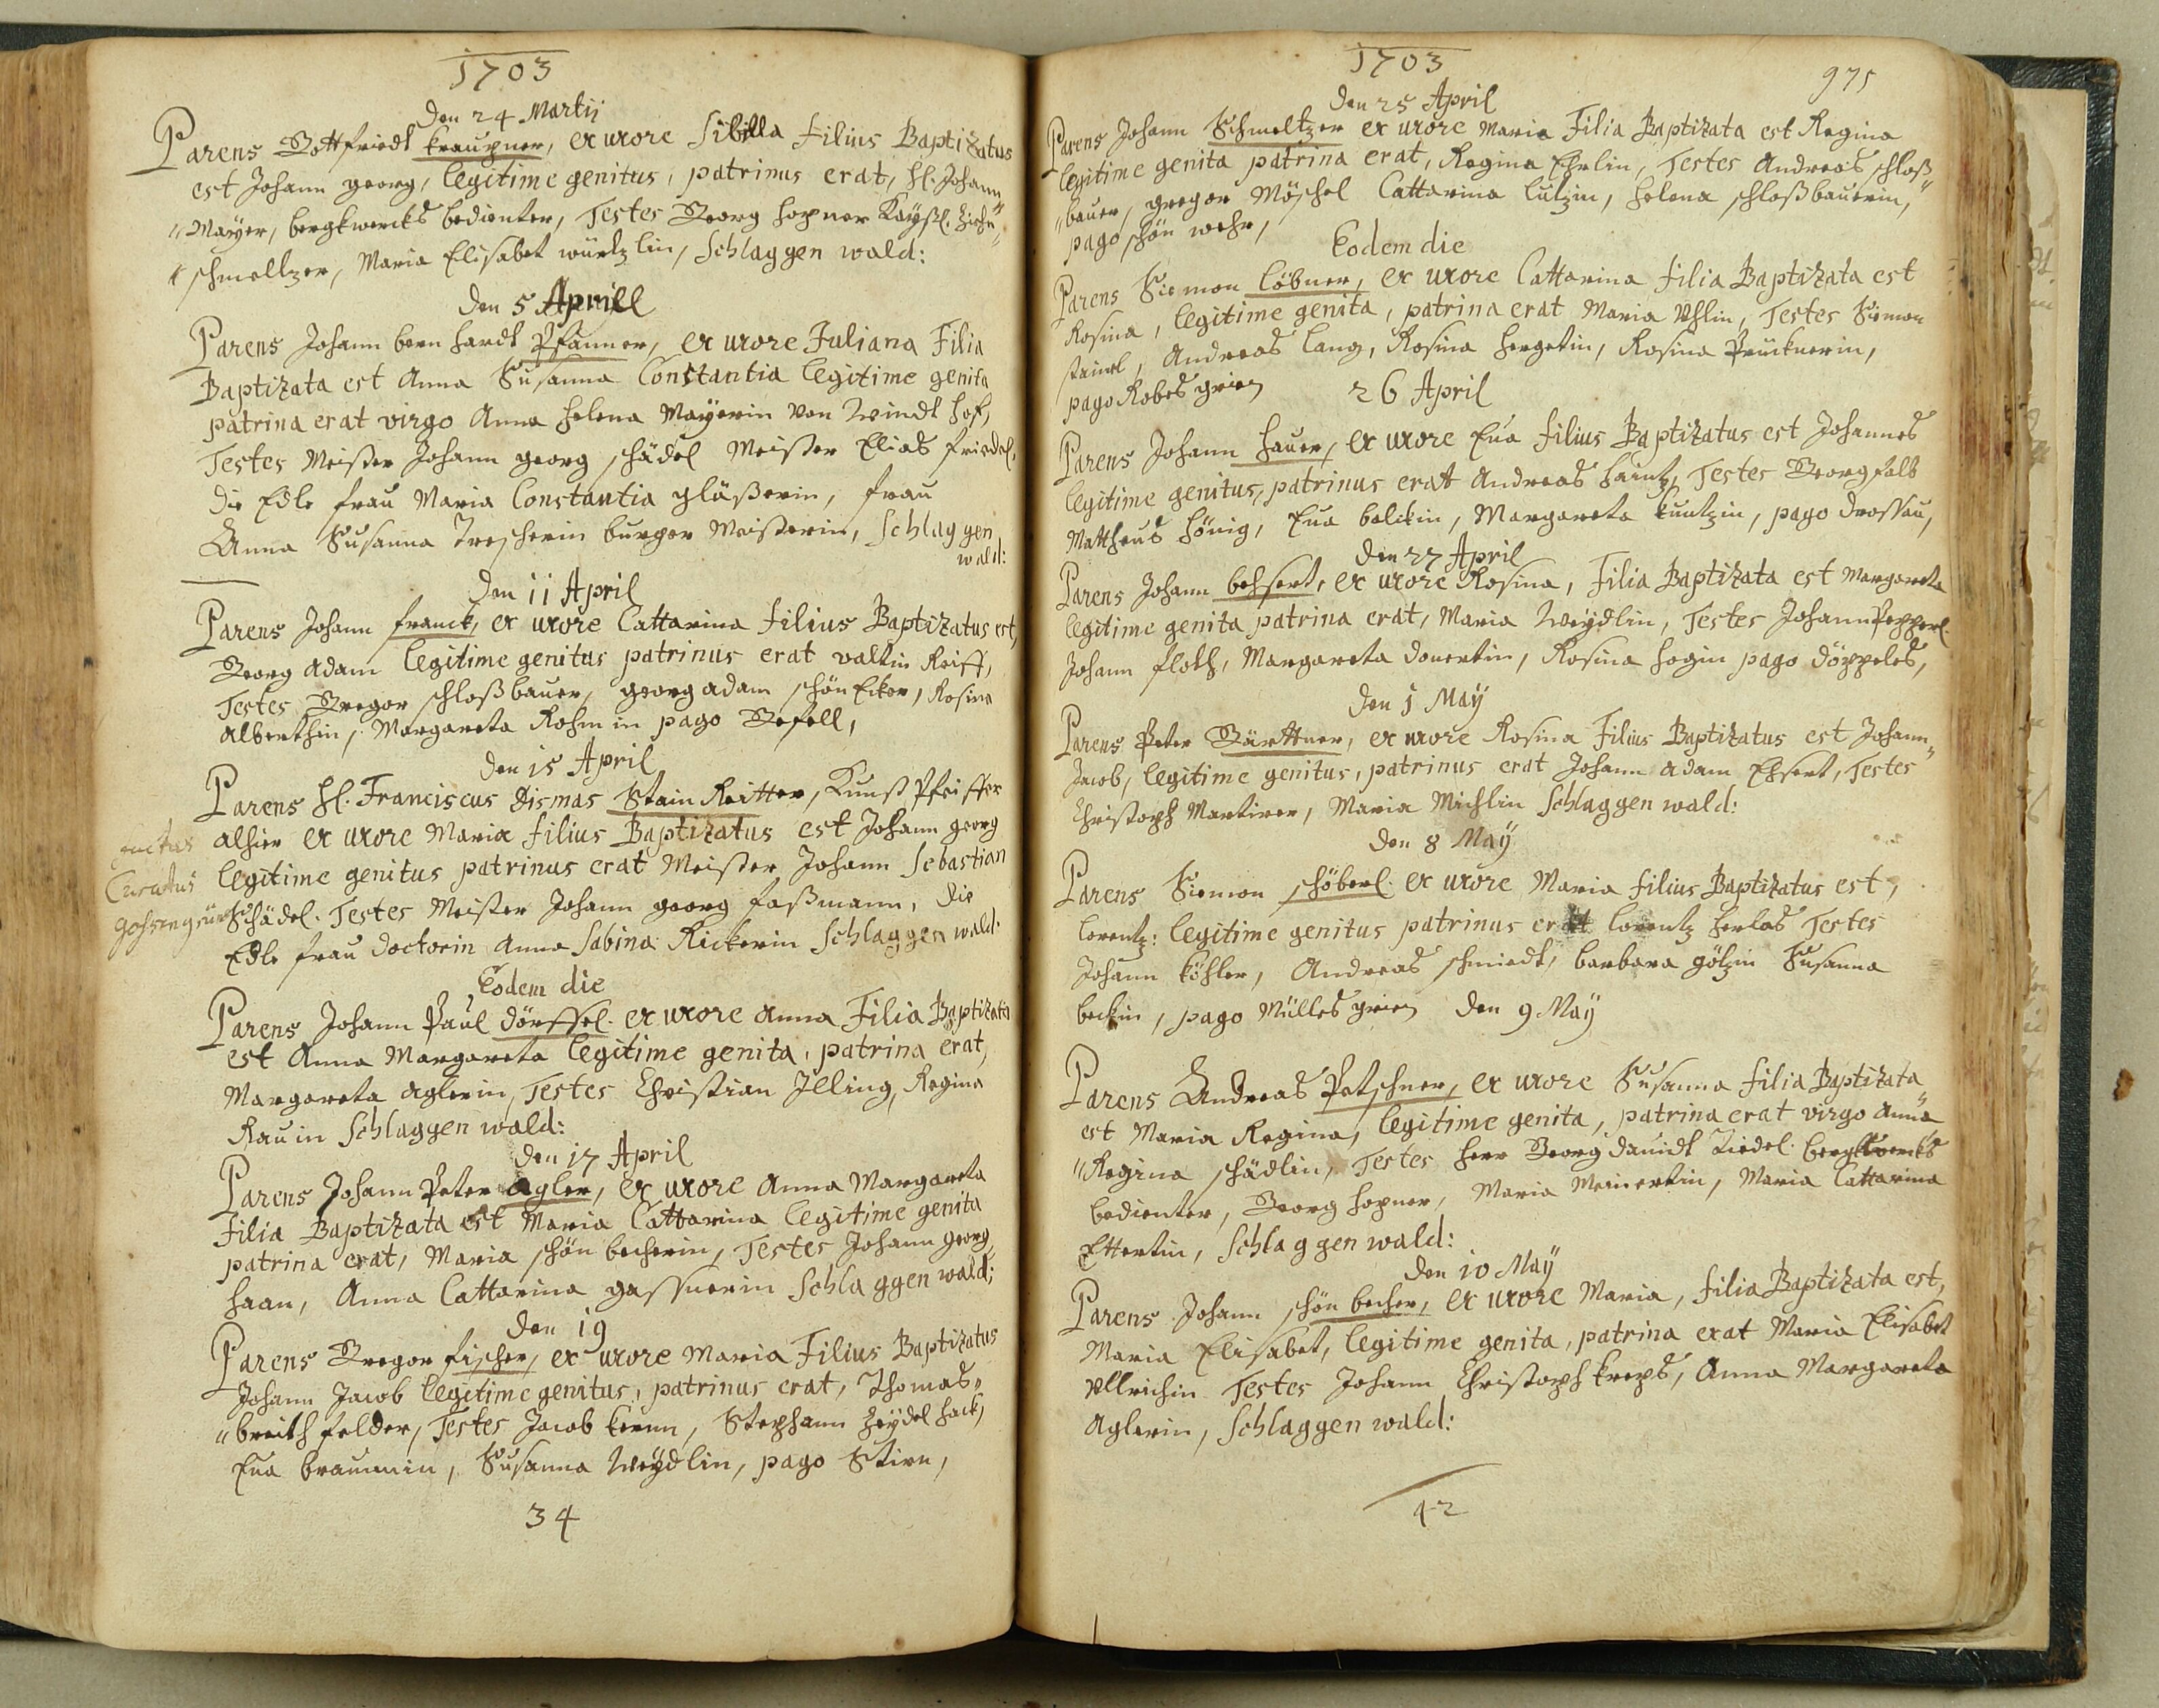 1703
Den 24 Martij
Parens Gottfriedt Kraupner, ex uxore Sibilla Filius Baptizatus
est Johann georg, legitime genitus, patrinus erat, H. Johann
Mayer, bergkwercks bedienter, Testes Georg Hopner Kayßl. Ziehn
schmeltzer, Maria Elisabet würtzlin, Schlaggen wald:
Den 5 Aprill
Parens Johann bernhardt Pfanner, ex uxore Juliana Filia
Baptizata est Anna Susanna Constantia legitime genita
patrina erat virgo Anna Helena Mayerin von Windt hof,
Testes Meister Johann georg schädel Meister Elias friedel,
die Edle frau Maria Constantia gläßerin, frau
Anna Susanna Trescherin burger Meisterin, Schlaggen
wald:
Den 11 April
Parens Johann franck, ex uxore Cattarina filius Baptizatus est,
Georg adam legitime genitus patrinus erat valtin Reiff,
Testes Gregor schloßbauer, georg adam schön Ecker, Rosina
Alberthin, Margareta Rohmin pago Gefell,
Den 15 April
Parens H. Franciscus Dismas Stain Reitter, Kunst Pfeiffer
alhier ex uxore Maria filius Baptizatus est Johann georg
legitime genitus patrinus erat Meister Johann Sebastian
Curatus
Schädel. Testes Meister Johann georg faßmann, die
Edle frau Doctorin Anna Sabina Rickerin Schlaggen wald.
Eodem die
Parens Johann Paul dörffel. ex uxore Anna Filia Baptizata
est Anna Margareta legitime genita, patrina erat,
Margareta Aglerin, Testes Christian Illing, Regina
Rauin Schlaggen wald:
Den 17 April
Parens Johann Peter Agler, ex uxore Anna Margareta
Filia Baptizata est Maria Cattarina legitime genita
patrina erat, Maria schön becherin, Testes Johann georg
Haan, Anna Cattarina gassnerin Schlaggen wald;
Den 19
Parens Gregor fischer, ex uxore Maria Filius Baptizatus
Johann Jacob legitime genitus, patrinus erat, Thomas
breith felder, Testes Jacob Kermn, Stephann Heydel hack,
Eua braunin, Susanna Weydlin, pago Stirn,
34
1703
975
Den 25 April
Parens Johann Schmeltzer ex uxore Maria Filia Baptizata est Regina
legitime genita patrina erat, Regina Ehrlin, Testes Andreas schloß
bauer, gregor Möschel Cattarina lutzin, Helena schloßbauerin,
pago schön wehr,
Eodem die
Parens Siemon Löbner, ex uxore Cattarina filia Baptizata est
Rosina, legitime genita, patrina erat Maria Uhlin, Testes Simon
stainl, Andreas lang, Rosina Hergetin, Rosina Prücknerin,
pago Robes grien
26 April
Parens Johann Hauer, ex uxore Eua filius Baptizatus est Johannes
legitime genitus, patrinus erat Andreas Haintz, Testes Georg falb
Mattheus Hönig, Eua balckin, Margareta Kuntzin, pago Drossau,
Den 27 April
Parens Johann behsert, ex uxore Rosina, Filia Baptizata est Margareta
legitime genita patrina erat, Maria Weydlin, Testes Johann Pepperl.
Johann floth, Margareta donertin, Rosina Hegin pago döppeles,
Den 1 May
Parens Peter Gärttner, ex uxore Rosina Filius Baptizatus est Johann
Jacob, legitime genitus, patrinus erat Johann Adam Ehsert, Testes
Christoph Martirer, Maria Michlin Schlaggen wald:
Den 8 May
Parens Siemon schöberl. ex uxore Maria filius Baptizatus est,
Lorentz: legitime genitus patrinus erat Lorentz Herlas Testes
Johann Köhler, Andreas schmiedt, barbara götzin Susanna
beckin, pago Mülles grien Den 9 May
Parens Andreas Petschner, ex uxore Susanna filia Baptizata
est Maria Regina, legitime genita, patrina erat virgo Anna
Regina schädlin, Testes Herr Georg dauidt Tiedel bergkwercks
bedienter, Georg Hopner, Maria Meinertin, Maria Cattarina
Ettertin, Schlaggen wald:
Den 10 May
Parens Johann schön becher, ex uxore Maria, filia Baptizata est,
Maria Elisabet, legitime genita, patrina erat Maria Elisabet
Ullrichin Testes Johann Christoph Kreps, Anna Margareta
Aglerin, Schlaggen wald:
42